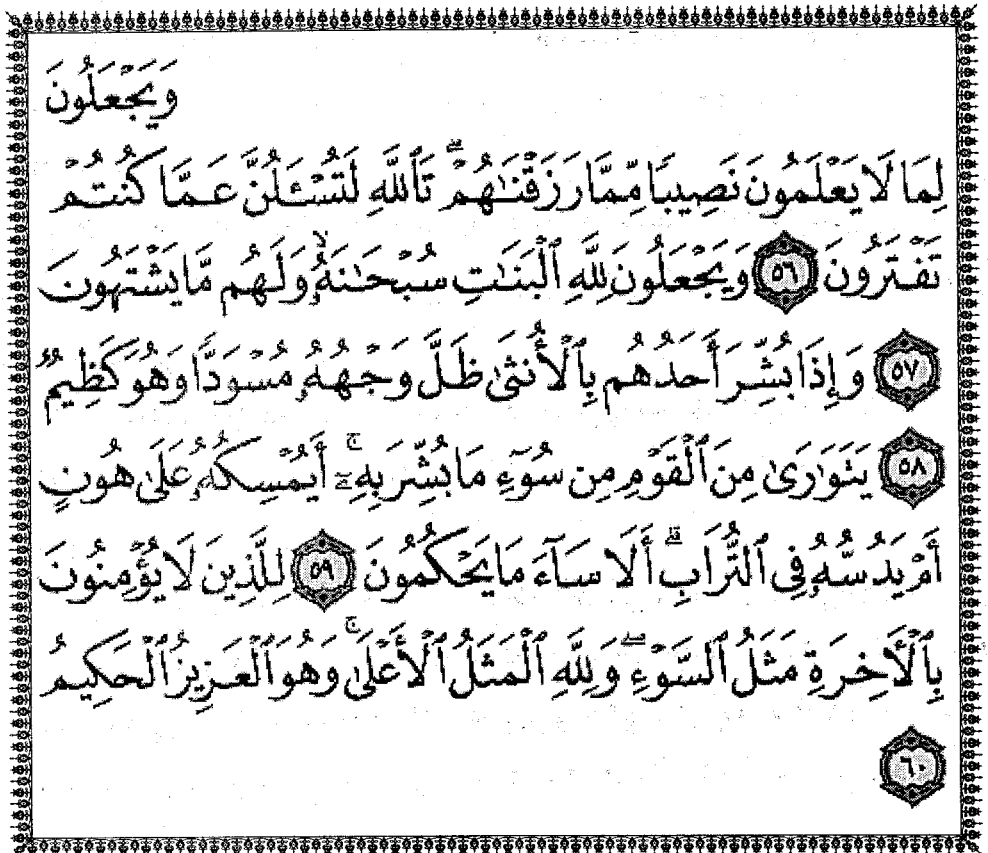 وَيَجْعَلُونَ
لِمَا لَا يَعْلَمُونَ نَصِيبًا مِّمَّا رَزَقْنَٰهُمْ ۗ تَٱللَّهِ لَتُسْـَٔلُنَّ عَمَّا كُنتُمْ
تَفْتَرُونَ ٥٦ وَيَجْعَلُونَ لِلَّهِ ٱلْبَنَٰتِ سُبْحَٰنَهُۥ ۙ وَلَهُم مَّا يَشْتَهُونَ
٥٧ وَإِذَا بُشِّرَ أَحَدُهُم بِٱلْأُنثَىٰ ظَلَّ وَجْهُهُۥ مُسْوَدًّا وَهُوَ كَظِيمٌ
٥٨ يَتَوَٰرَىٰ مِنَ ٱلْقَوْمِ مِن سُوٓءِ مَا بُشِّرَ بِهِۦٓ ۚ أَيُمْسِكُهُۥ عَلَىٰ هُونٍ
أَمْ يَدُسُّهُۥ فِى ٱلتُّرَابِ ۗ أَلَا سَآءَ مَا يَحْكُمُونَ ٥٩ لِلَّذِينَ لَا يُؤْمِنُونَ
بِٱلْأَخِرَةِ مَثَلُ ٱلسَّوْءِ ۖ وَلِلَّهِ ٱلْمَثَلُ ٱلْأَعْلَىٰ ۚ وَهُوَ ٱلْعَزِيزُ ٱلْحَكِيمُ
٦٠